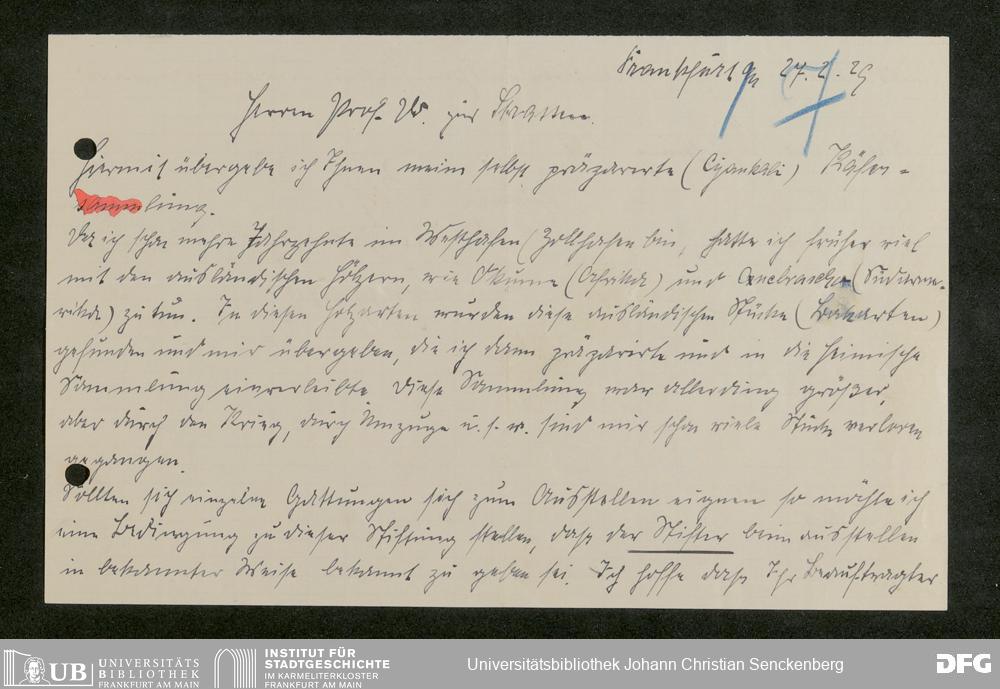 Frankfurt a/M 27.2.29
Herrn Prof. Dr. zur Strassen.
Hiermit übergebe ich Ihnen meine selbst präparierte (Cyankali) Käfer-
sammlung.
Da ich schon mehre Jahrzehnte im Westhafen (Zollhafen bin, hatte ich früher viel
mit den ausländischen Hölzern, wie Okume (Afrika) und Quebracho (Südame-
rika) zu tun. In diesen Holzarten wurden diese ausländischen Stücke (
arten)
gefunden und mir übergeben, die ich dann präparirte und in die heimische
Sammlung einverleibte. Diese Sammlung war allerding größer,
aber durch den Krieg, durch Umzuge u.s.w. sind mir schon viele Stücke verloren
gegangen.
Sollten sich einzelne Gattungen sich zum Ausstellen eignen so möchte ich
eine Bedingung zu dieser Stiftung stellen, dass der Stifter beim ausstellen
in bekannter Weise bekannt zu geben sei. Ich hoffe dass Ihr Beauftragter
UB UNIVERSITÄTS
BIBLIOTHEK
FRANKFURT AM MAIN
INSTITUT FÜR
STADTGESCHICHTE
IM KARMELITERKLOSTER
FRANKFURT AM MAIN
Universitätsbibliothek Johann Christian Senckenberg
DFG